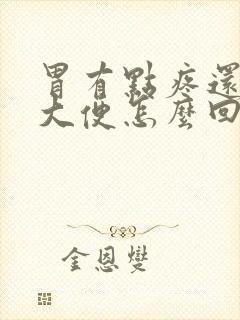 胃有點疼還
大便怎麼回
金恩燮